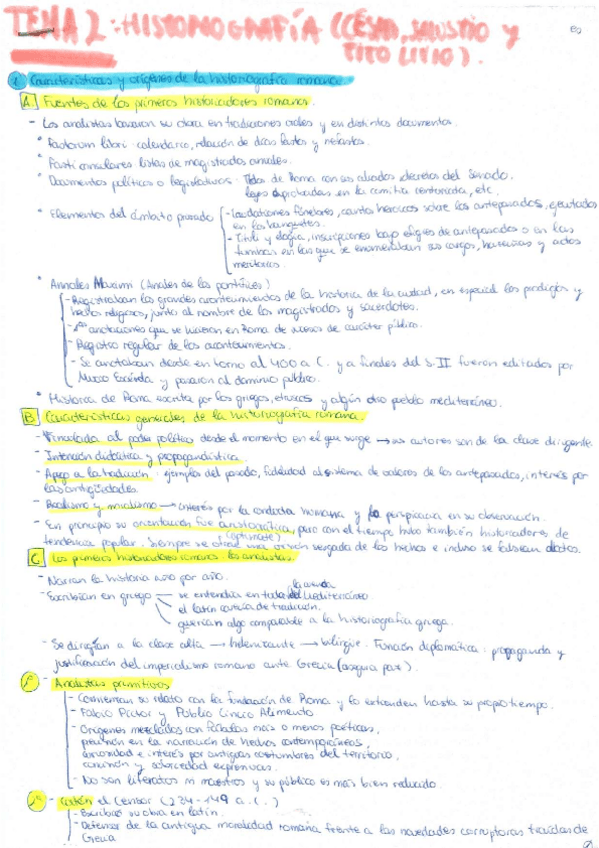 TEMA 2: HISTORIOGRAFÍA (CÉSAR, SALUSTIO y
TITO LIVIO).
1 Características y orígenes de la historiografía romana.
A. Fuentes de los primeros historiadores romanos.
- Los analistas basaron su obra en tradiciones orales y en distintos documentos.
* Fastorum libri: calendario, relación de días fastos y nefastos.
* Fasti consulares: listas de magistrados anuales.
* Documentos políticos o legislativos: Ttdos de Roma con sus aliados, decretos del Senado.
leyes aprobadas en la comitia centuriata, etc.
* Elementos del ámbito privado
- Laudationes fúnebres, cantos heroicos sobre los antepasados, ejecutados
en los banquetes.
- Tituli y elogia, inscripciones bajo efigies de antepasados o en las
tumbas en las que se enumeraban sus cargos, hazañas y actos
meritorios.
* Annales Maximi (Anales de los pontífices)
- Registraban los grandes acontecimientos de la historia de la ciudad, en especial los prodigios y
hechos religiosos, junto al nombre de los magistrados y sacerdotes.
- 1as anotaciones que se hicieron en Roma de sucesos de carácter público.
- Registro regular de los acontecimientos.
- Se anotaban desde en torno al 400 a C. y a finales del s. II fueron editados por
Mucio Escévola y pasaron al dominio público.
* Historia de Roma escrita por los griegos, etruscos y algún otro pueblo mediterráneo.
B Características generales de la historiografía romana.
- Vinculada al poder político desde el momento en el que surge → sus autores son de la clase dirigente.
- Intención didáctica y propagandística.
- Apego a la tradición: ejemplos del pasado, fidelidad al sistema de valores de los antepasados, interés por
las antigüedades.
- Realismo y moralismo → interés por la conducta humana y la perspicacia en su observación.
- En principio su orientación fue aristocrática, pero con el tiempo hubo también historiadores de
(optimate)
tendencia popular. Siempre se ofrece una visión sesgada de los hechos e incluso se falsean datos.
C Los primeros historiadores romanos: los analistas.
- Narran la historia año por año.
- Escribían en griego
se entendía en toda la cuenda del Mediterráneo
el latín carecía de tradición.
querían algo comparable a la historiografía griega.
- Se dirigían a la clase alta → helenizante → bilingüe. Función diplomática: propaganda y
justificación del imperialismo romano ante Grecia (asegura paz).
- Analistas primitivos
- Comienzan su relato con la fundación de Roma y lo extienden hasta su propio tiempo.
- Fabio Pictor y Publio Cincio Alimento
- Orígenes mezclados con fábulas más o menos poéticas,
precisión en la narración de hechos contemporáneos,
curiosidad e interés por antiguas costumbres del territorio,
concisión y sobriedad expresivas.
- No son literatos ni maestros y su público es más bien reducido.
- Catón el Censor (234-149 a. C.)
- Escribió su obra en latín.
- Defensor de la antigua moralidad romana frente a las novedades corruptoras traídas de
Grecia